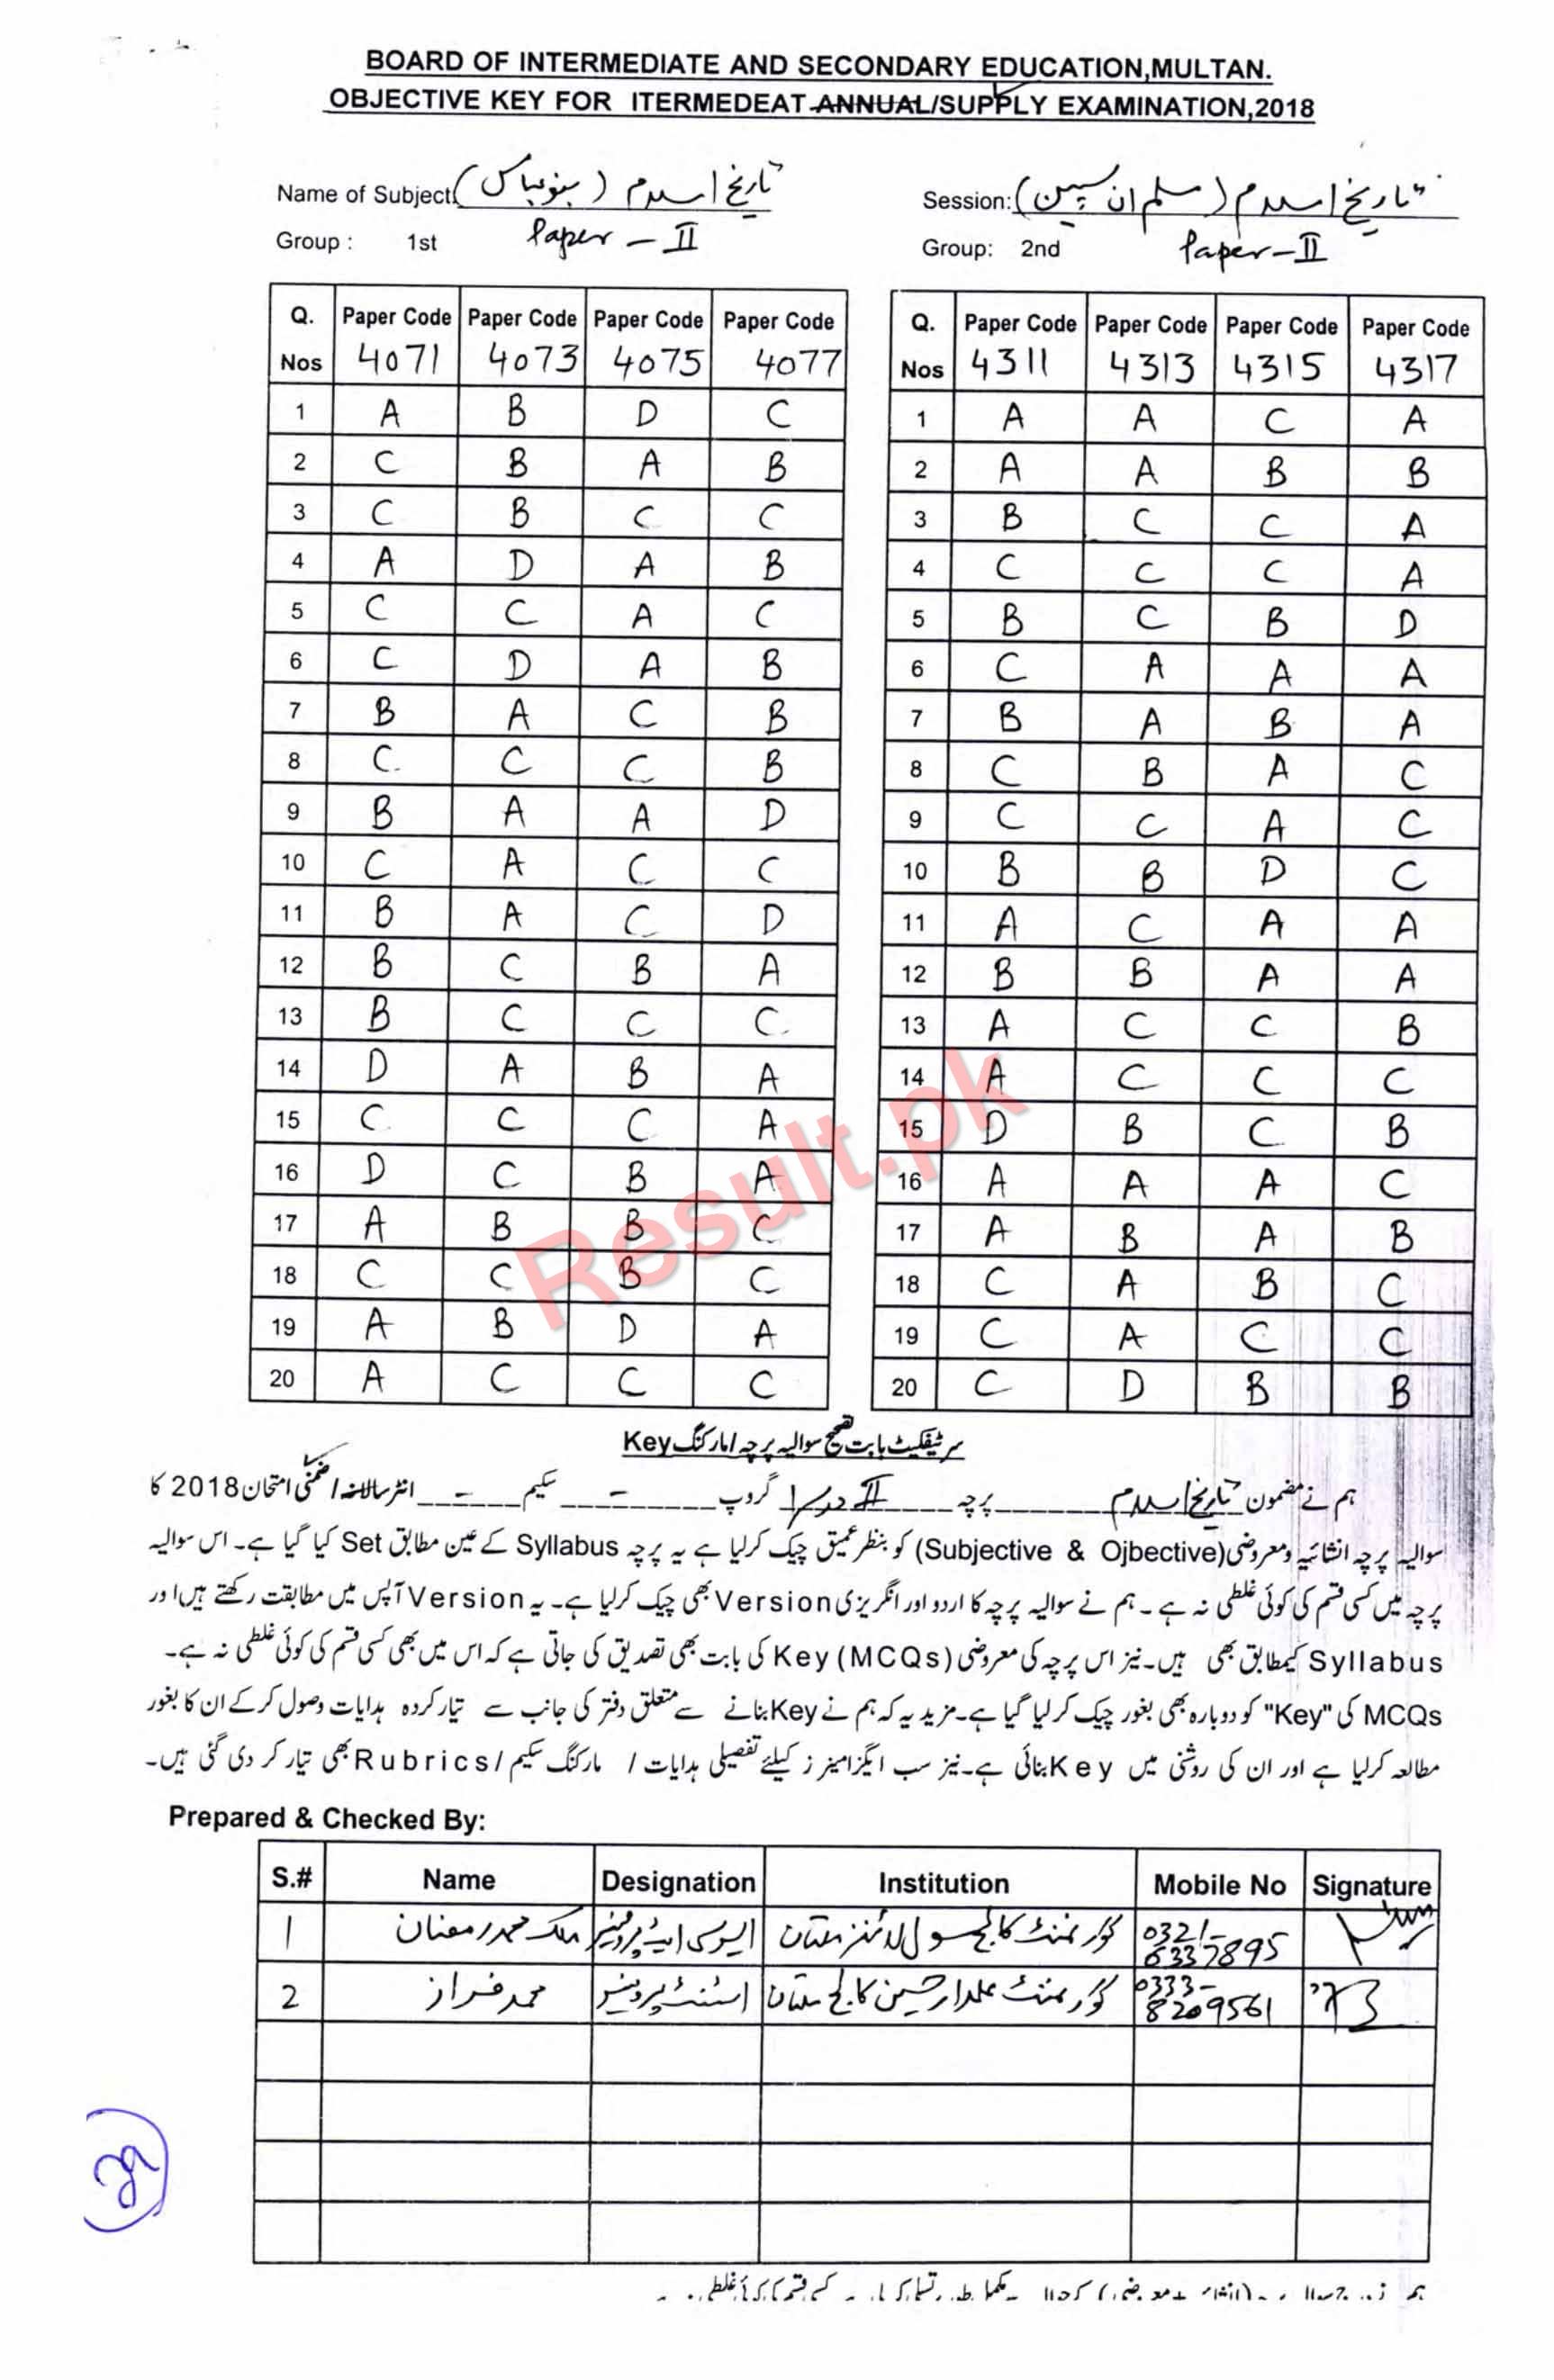 BOARD OF INTERMEDIATE AND SECONDARY EDUCATION,MULTAN.
OBJECTIVE KEY FOR ITERMEDEAT ANNUAL/SUPPLY EXAMINATION,2018
Name of Subject: تاریخ اسلام (بنو عباس)
Paper - II
Group : 1st
Session: تاریخ اسلام (مسلم ان سپین)
Paper - II
Group: 2nd
Q. Nos Paper Code 4071 Paper Code 4073 Paper Code 4075 Paper Code 4077
1 A B D C
2 C B A B
3 C B C C
4 A D A B
5 C C A C
6 C D A B
7 B A C B
8 C C C B
9 B A A D
10 C A C C
11 B A C D
12 B C B A
13 B C C C
14 D A B A
15 C C C A
16 D C B A
17 A B B C
18 C C B C
19 A B D A
20 A C C C
Q. Nos Paper Code 4311 Paper Code 4313 Paper Code 4315 Paper Code 4317
1 A A C A
2 A A B B
3 B C C A
4 C C C A
5 B C B D
6 C A A A
7 B A B A
8 C B A C
9 C C A C
10 B B D C
11 A C A A
12 B B A A
13 A C C B
14 A C C C
15 D B C B
16 A A A C
17 A B A B
18 C A B C
19 C A C C
20 C D B B
Result.pk
سرٹیفکیٹ بابت تصحیح سوالیہ پرچہ/مارکنگ Key
ہم نے مضمون تاریخ اسلام پرچہ II گروپ سکیم انٹر سالانہ/ضمنی امتحان 2018 کا
سوالیہ پرچہ انشائیہ ومعروضی (Subjective & Ojbective) کو بنظر عمیق چیک کرلیا ہے یہ پرچہ Syllabus کے عین مطابق Set کیا گیا ہے۔ اس سوالیہ
پرچہ میں کسی قسم کی کوئی غلطی نہ ہے ۔ ہم نے سوالیہ پرچہ کا اردو اور انگریزی Version بھی چیک کرلیا ہے۔ یہ Version آپس میں مطابقت رکھتے ہیں اور
Syllabus کیمطابق بھی ہیں۔نیز اس پرچہ کی معروضی (MCQs) Key کی بابت بھی تصدیق کی جاتی ہے کہ اس میں بھی کسی قسم کی کوئی غلطی نہ ہے۔
MCQs کی "Key" کو دوبارہ بھی بغور چیک کرلیا گیا ہے۔مزید یہ کہ ہم نے Key بنانے سے متعلق دفتر کی جانب سے تیار کردہ ہدایات وصول کرکے ان کا بغور
مطالعہ کرلیا ہے اور ان کی روشنی میں Key بنائی ہے۔نیز سب ایگزامینرز کیلئے تفصیلی ہدایات / مارکنگ سکیم /Rubrics بھی تیار کر دی گئی ہیں۔
Prepared & Checked By:
S.# Name Designation Institution Mobile No Signature
1 ملک محمد رمضان ایسوسی ایٹ پروفیسر گورنمنٹ کالج سول لائنز ملتان 0321-6337895
2 محمد فراز اسسٹنٹ پروفیسر گورنمنٹ علمدار حسین کالج ملتان 0333-8209561